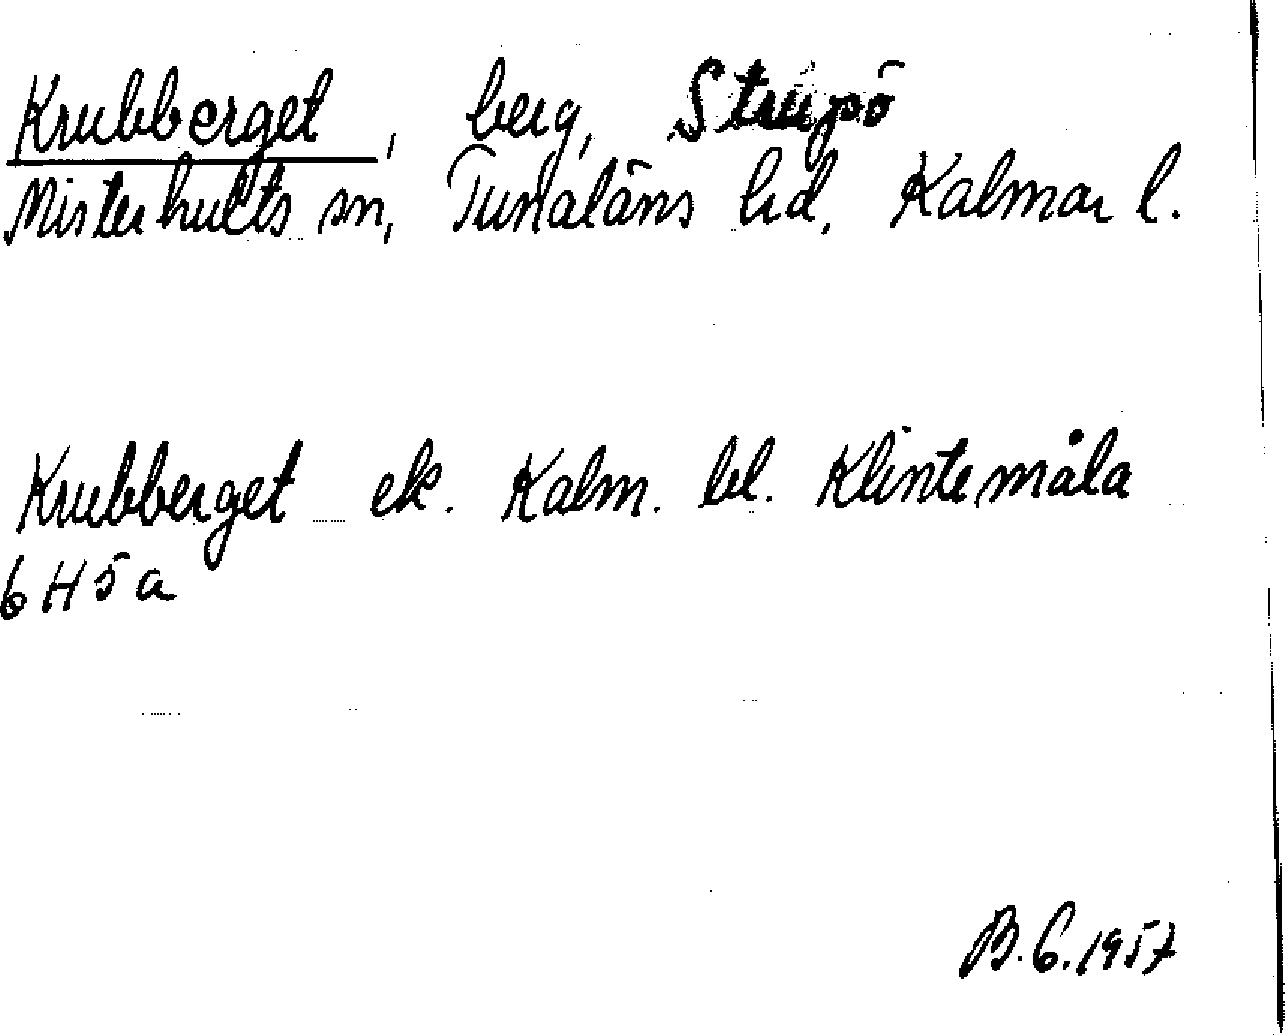 Krubberget, berg, Strupö
Misterhults sn, Tunaläns hd, Kalmar l.
Krubberget ek. Kalm. bl. Klintemåla
6 H 5 a
B.G. 1957